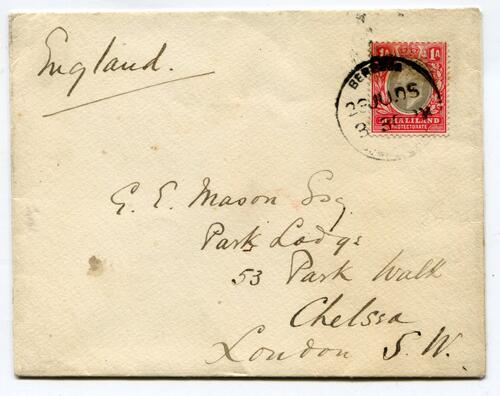 England.
1A 1A
BERBERA
JU 05
SOMALILAND
PROTECTORATE
G. E. Mason Esq
Park Lodge
53 Park Walk
Chelsea
London S. W.